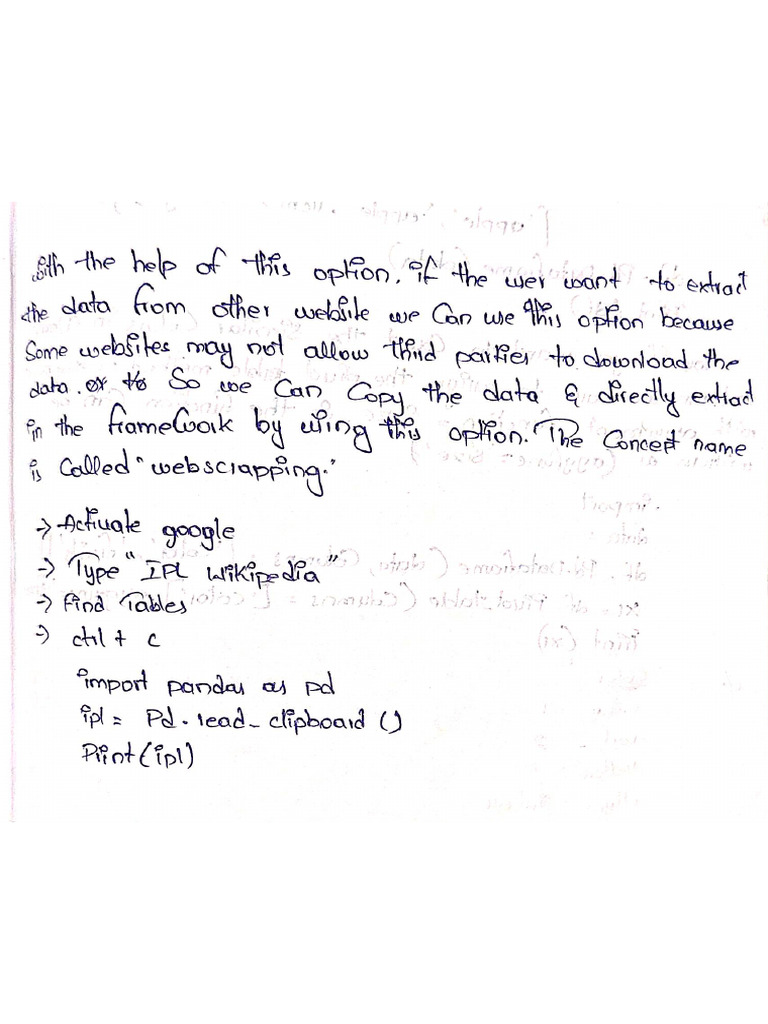 with the help of this option. if the user want to extract
the data from other website we can use this option because
Some websites may not allow third parties to download the
data. So we can copy the data & directly extract
in the framework by using this option. The Concept name
is Called "webscrapping."
→ Activate google
→ Type "IPL Wikipedia"
→ Find Tables
→ ctrl + c
import pandas as pd
ipl = Pd.read_clipboard ()
Print(ipl)